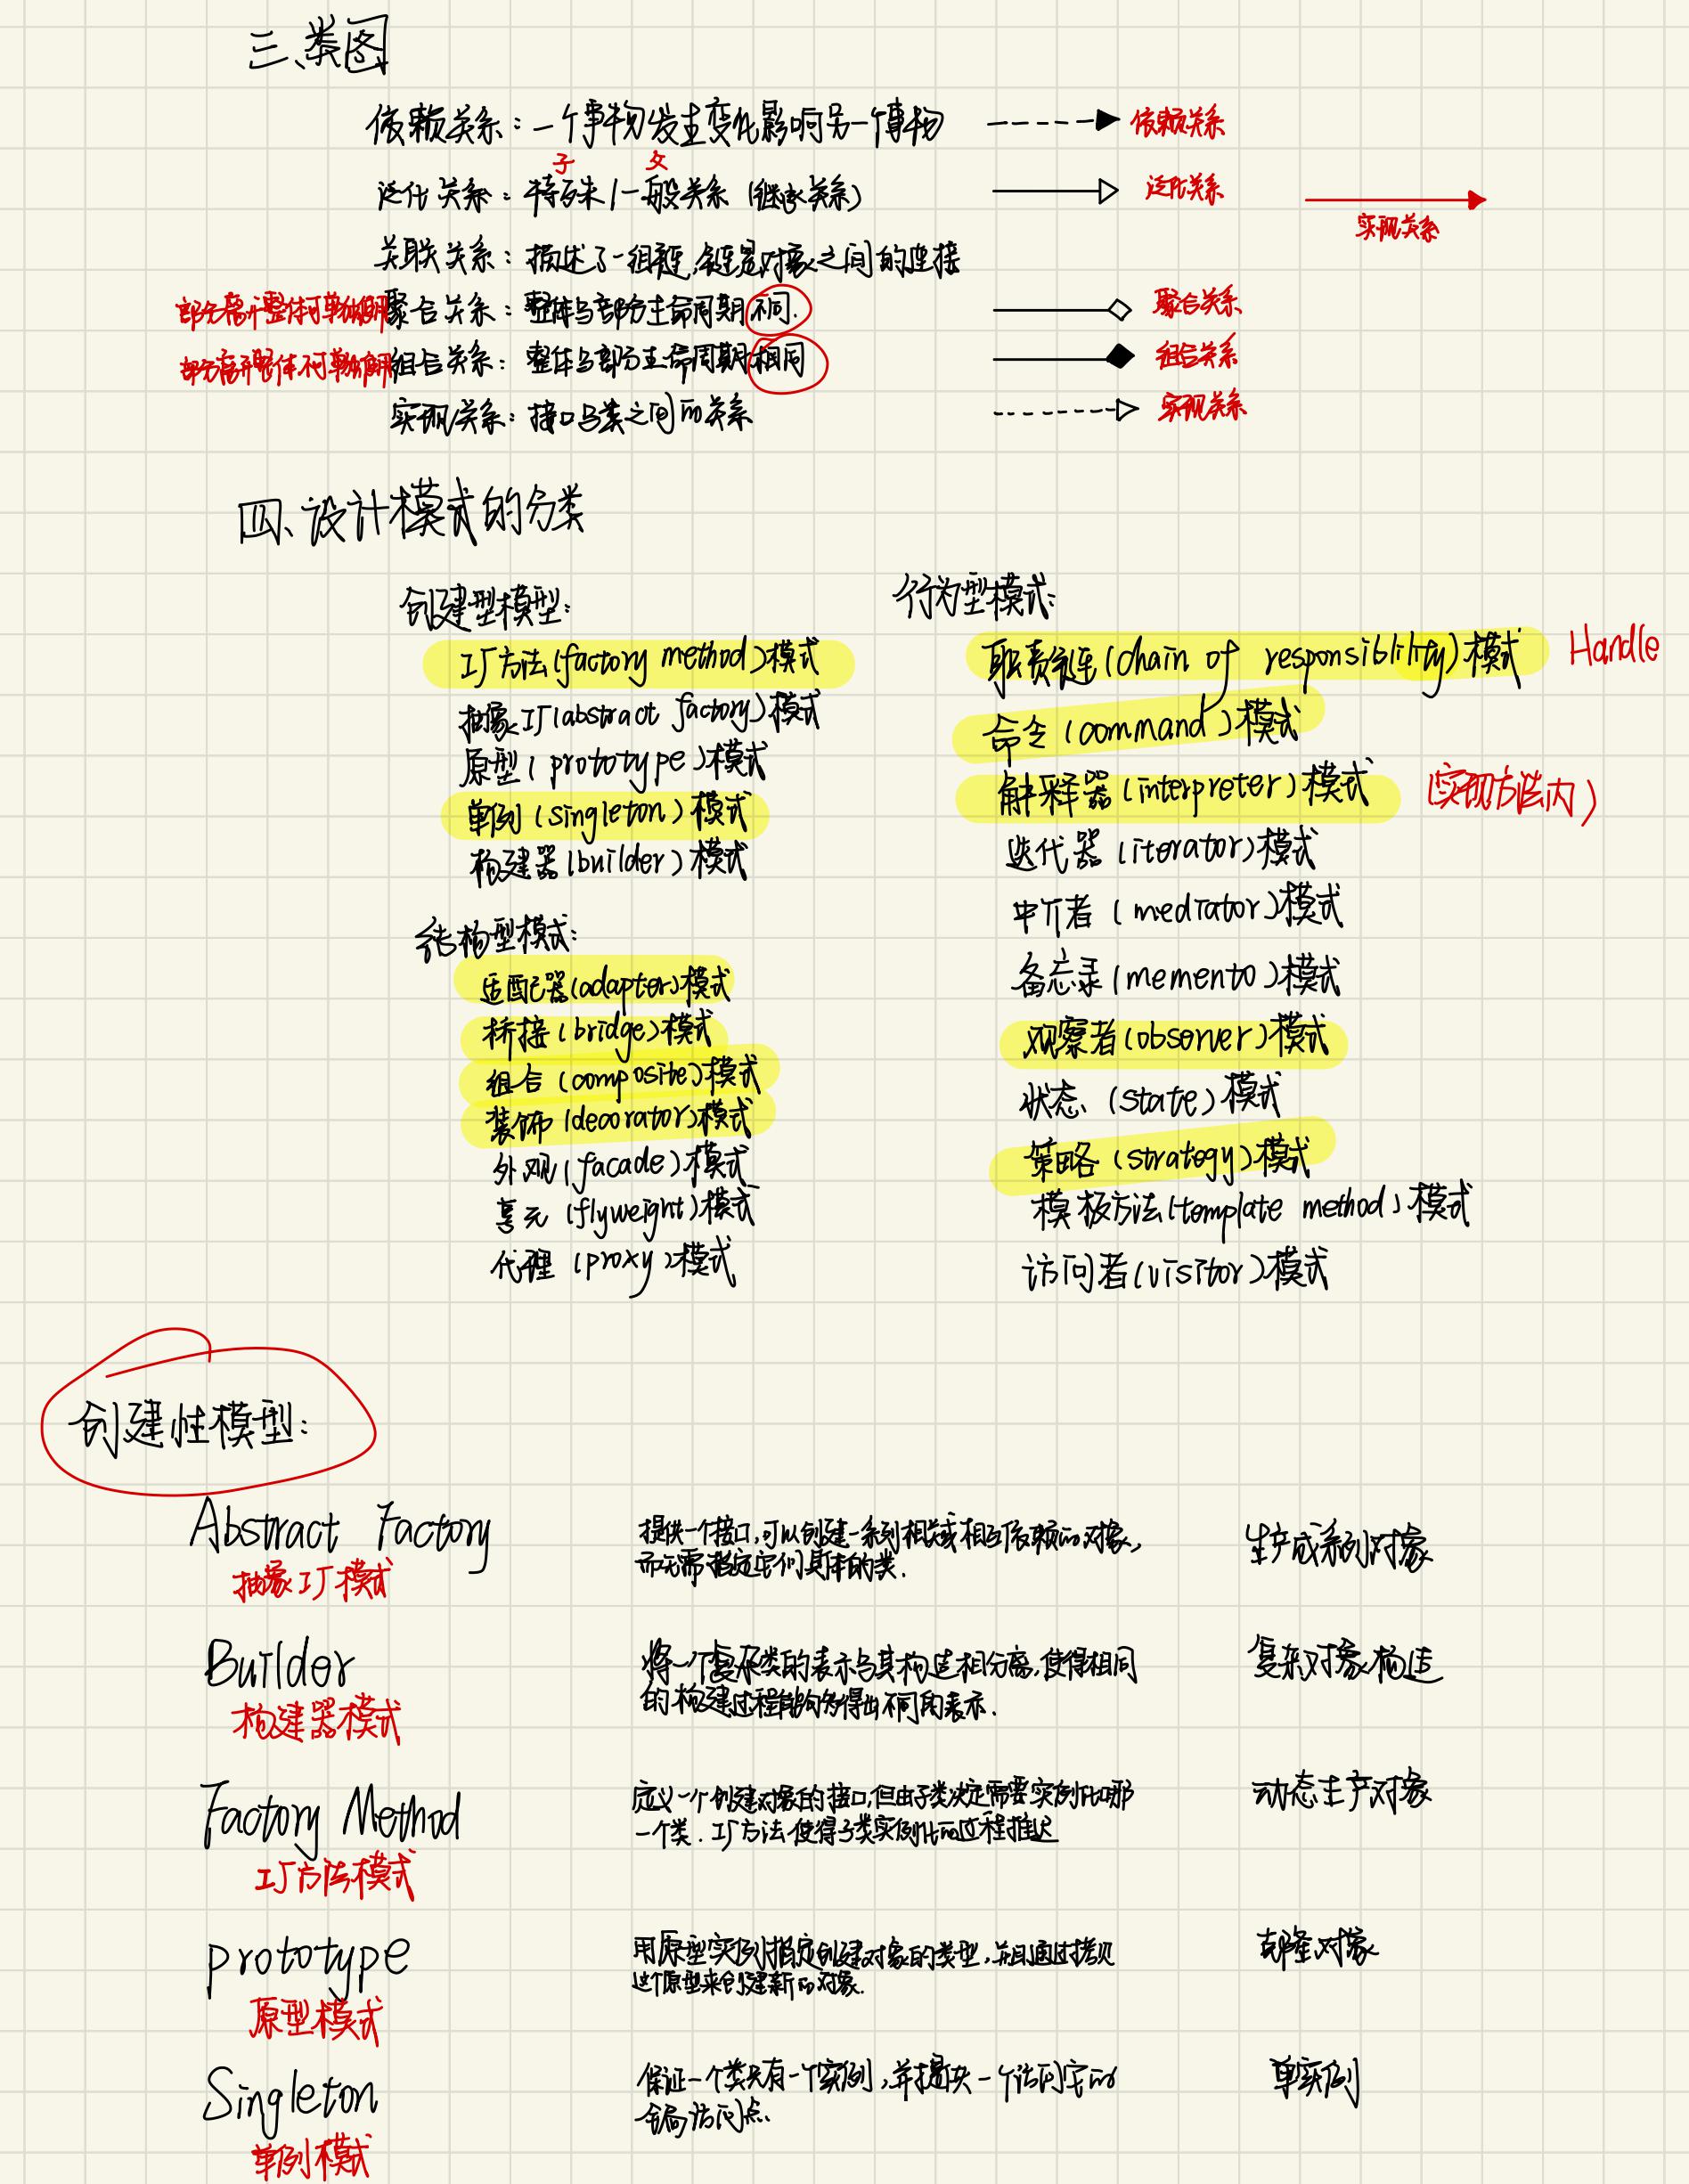 三、类图
依赖关系：一个事物发生变化影响另一个事物 依赖关系
子 父
泛化关系：特殊/一般关系（继承关系） 泛化关系
实现关系
关联关系：描述了一组链，链是对象之间的连接
部分离开整体可单独使用 聚合关系：整体与部分生命周期不同. 聚合关系
部分离开整体不可单独使用 组合关系：整体与部分生命周期相同 组合关系
实现关系：接口与类之间的关系 实现关系
四、设计模式的分类
创建型模型：
工厂方法(factory method)模式
抽象工厂(abstract factory)模式
原型(prototype)模式
单例(singleton)模式
构建器(builder)模式
结构型模式：
适配器(adapter)模式
桥接(bridge)模式
组合(composite)模式
装饰(decorator)模式
外观(facade)模式
享元(flyweight)模式
代理(proxy)模式
行为型模式：
职责链(chain of responsibility)模式 Handle
命令(command)模式
解释器(interpreter)模式 (实现方法内)
迭代器(iterator)模式
中介者(mediator)模式
备忘录(memento)模式
观察者(observer)模式
状态(state)模式
策略(strategy)模式
模板方法(template method)模式
访问者(visitor)模式
创建性模型：
Abstract Factory
抽象工厂模式
提供一个接口，可以创建一系列相关或相互依赖的对象，
而无需指定它们具体的类.
生产成系列对象
Builder
构建器模式
将一个复杂类的表示与其构造相分离，使得相同
的构建过程能够得出不同的表示.
复杂对象构造
Factory Method
工厂方法模式
定义一个创建对象的接口，但由子类决定需要实例化哪
一个类. 工厂方法使得子类实例化的过程推迟
动态生产对象
prototype
原型模式
用原型实例指定创建对象的类型，并且通过拷贝
这个原型来创建新的对象.
克隆对象
Singleton
单例模式
保证一个类只有一个实例，并提供一个访问它的
全局访问点.
单实例